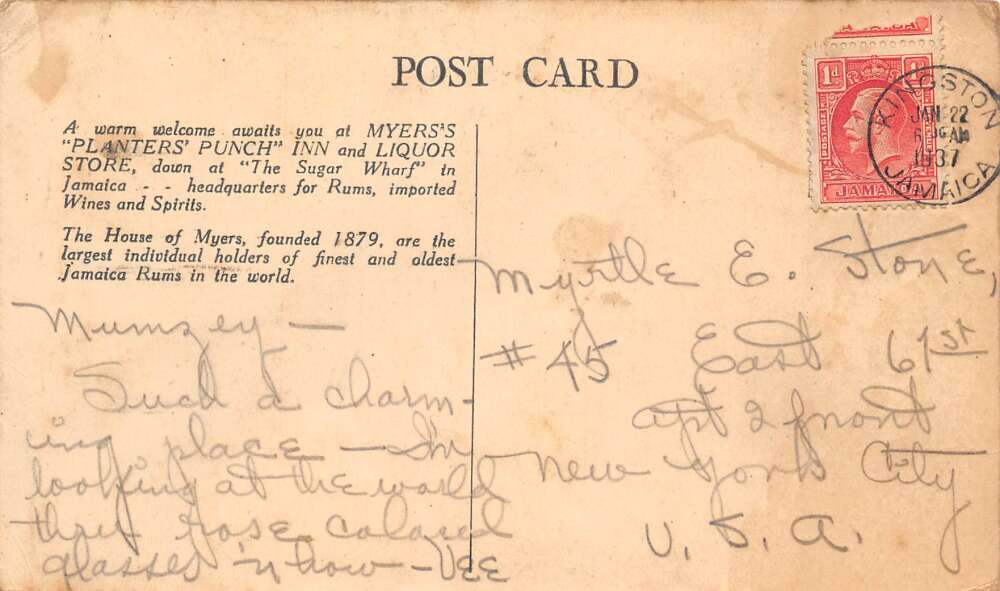 POST CARD
A warm welcome awaits you at MYERS'S
"PLANTERS' PUNCH" INN and LIQUOR
STORE, down at "The Sugar Wharf" in
Jamaica - - headquarters for Rums, imported
Wines and Spirits.
The House of Myers, founded 1879, are the
largest individual holders of finest and oldest
Jamaica Rums in the world.
Mumzey —
Such a charm-
ing place — I'm
looking at the world
thru rose colored
glasses 'n how — Vee
1d
POSTAGE
JAMAI
KINGSTON
JAN 22
AM
1937
JAMAICA
Myrtle E. Stone,
#45 East 61st
apt 2 front
New York City
U. S. A.